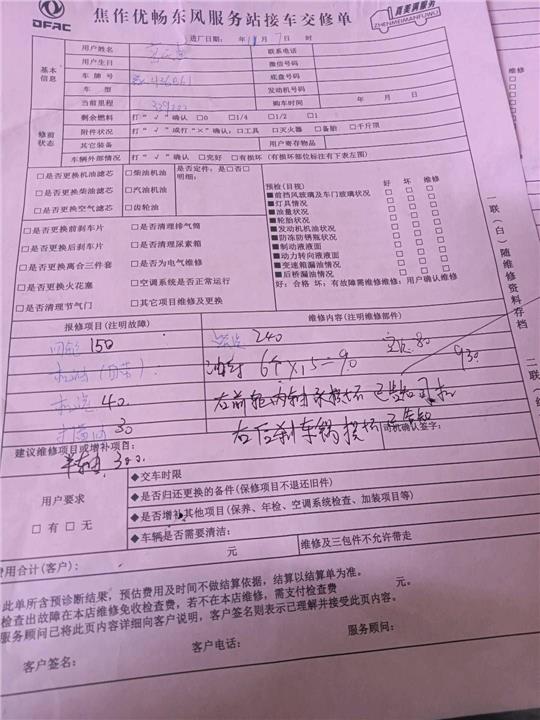 DFAC
焦作优畅东风服务站接车交修单
真美满服务
ZHENMEIMANFUWU
进厂日期: 年 11 月 7 日 时
基本信息
用户姓名 联系电话
用户生日 微信号码
车牌号 底盘号码
车型 发动机号码
当前里程 购车时间 年 月 日
修前状态
剩余燃料 打"√"确认 □0 □1/4 □1/2 □1
附件状况 打"√"或打"×"确认:□工具 □灭火器 □备胎 □千斤顶
其它装备 用户寄存物品
车辆外部情况 打"√"确认 □完好 □有损坏(有损坏部位标注有下表左图)
□是否更换机油滤芯 □柴油机油 是否定件:是□否□
□是否更换柴油滤芯 □汽油机油 明细:
□是否更换空气滤芯 □齿轮油
□是否更换前刹车片 □是否清理排气筒
□是否更换后刹车片 □是否清理尿素箱
□是否更换离合三件套 □是否为电气维修
□是否更换火花塞 □空调系统是否正常运行
□是否清理节气门 □其它项目维修及更换
预检(目视) 好 坏 维修
■前挡风玻璃及车门玻璃状况
■灯具情况
■油量状况
■轮胎状况
■发动机机油状况
■防冻防锈瓶状况
■制动液液面
■动力转向液液面
■变速箱漏油情况
■后桥漏油情况
好:合格 坏:有故障需维修维修:用户确认维修
报修项目(注明故障) 维修内容(注明维修部件)
150 240 80
6个×15=90 930
40 左前轮内轴承损坏 已告知司机
30 右后刹车锅损坏 已告知
司机确认签字:
建议维修项目或增补项目:
300
用户要求
□有 □无
◆交车时限
◆是否归还更换的备件(保修项目不退还旧件)
◆是否增补其他项目(保养、年检、空调系统检查、加装项目等)
◆车辆是否需要清洁:
费用合计(客户): 元 维修及三包件不允许带走
此单所含预诊断结果,预估费用及时间不做结算依据,结算以结算单为准。
检查出故障在本店维修免收检查费,若不在本店维修,需支付检查费 元。
服务顾问已将此页内容详细向客户说明,客户签名则表示已理解并接受此页内容。
客户签名: 客户电话: 服务顾问:
一联(白)随维修资料存档
二联
维修